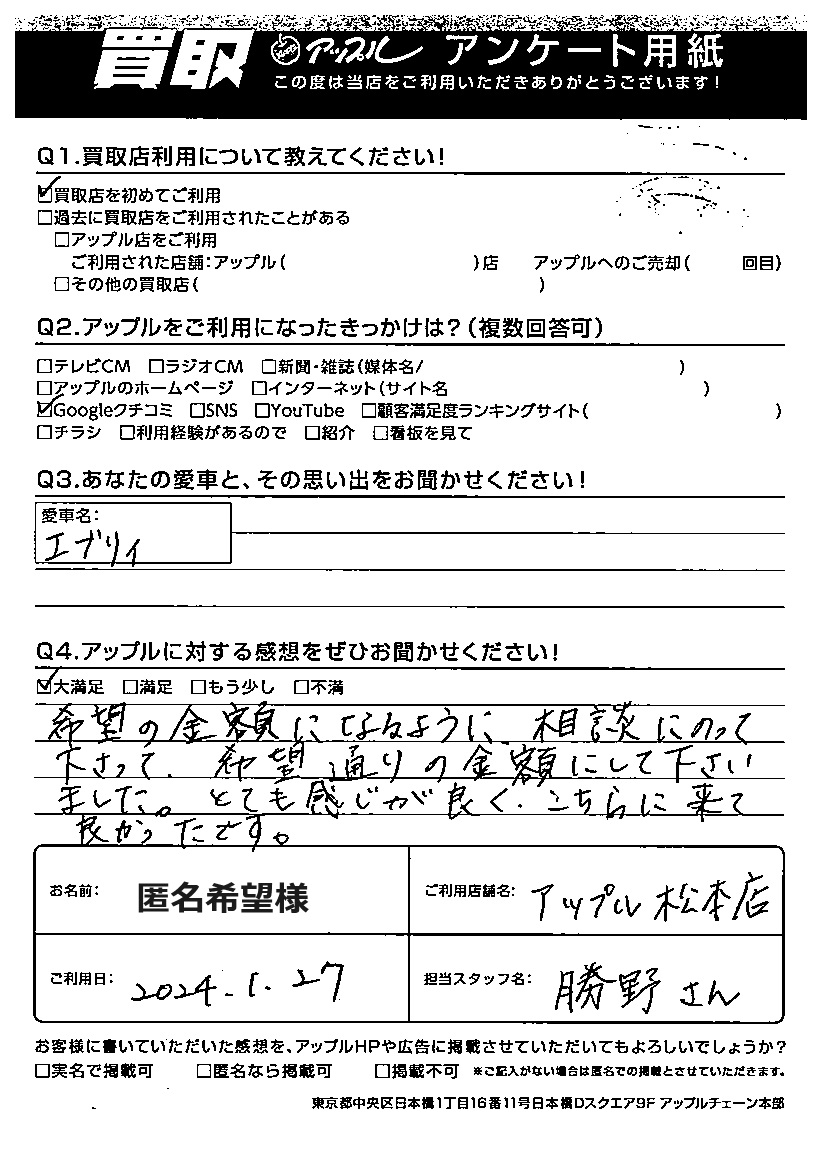 買取 アップル アンケート用紙
この度は当店をご利用いただきありがとうございます!
Q1.買取店利用について教えてください!
☑買取店を初めてご利用
□過去に買取店をご利用されたことがある
□アップル店をご利用
ご利用された店舗:アップル( )店 アップルへのご売却( 回目)
□その他の買取店( )
Q2.アップルをご利用になったきっかけは?(複数回答可)
□テレビCM □ラジオCM □新聞・雑誌(媒体名/ )
□アップルのホームページ □インターネット(サイト名 )
☑Googleクチコミ □SNS □YouTube □顧客満足度ランキングサイト( )
□チラシ □利用経験があるので □紹介 □看板を見て
Q3.あなたの愛車と、その思い出をお聞かせください!
愛車名:
エブリィ
Q4.アップルに対する感想をぜひお聞かせください!
☑大満足 □満足 □もう少し □不満
希望の金額になるように、相談にのって
下さって、希望通りの金額にして下さい
ました。とても感じが良く、こちらに来て
良かったです。
お名前: 匿名希望様 ご利用店舗名: アップル松本店
ご利用日: 2024.1.27 担当スタッフ名: 勝野さん
お客様に書いていただいた感想を、アップルHPや広告に掲載させていただいてもよろしいでしょうか?
□実名で掲載可 □匿名なら掲載可 □掲載不可 ※ご記入がない場合は匿名での掲載とさせていただきます。
東京都中央区日本橋1丁目16番11号日本橋Dスクエア9F アップルチェーン本部